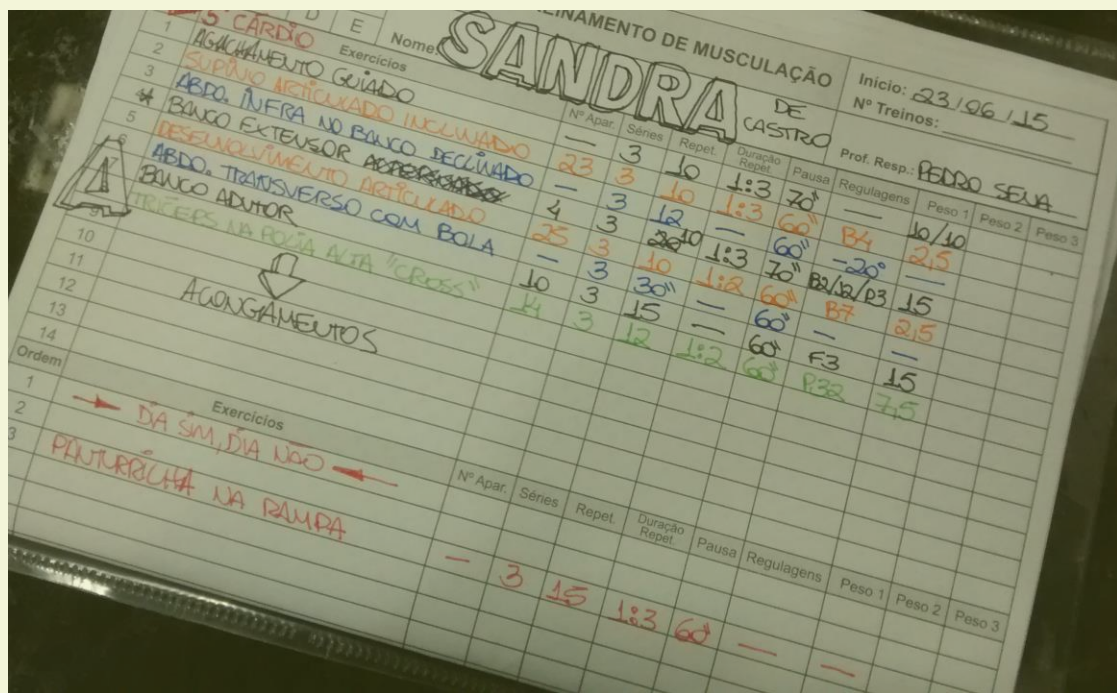 TREINAMENTO DE MUSCULAÇÃO
D E Nome: SANDRA DE CASTRO
Início: 23/06/15
Nº Treinos:
Prof. Resp.: PEDRO SENA
5' CARDIO
Exercícios Nº Apar. Séries Repet. Duração Repet. Pausa Regulagens Peso 1 Peso 2 Peso 3
1 AGACHAMENTO GUIADO — 3 10 1:3 70" — 10/10
2 SUPINO ARTICULADO INCLINADO 23 3 10 1:3 60" B4 2,5
3 ABDO. INFRA NO BANCO DECLINADO — 3 12 — 60" -20° —
4 BANCO EXTENSOR 4 3 10 1:3 70" B2/J2/P3 15
5 DESENVOLVIMENTO ARTICULADO 25 3 10 1:2 60" B7 2,5
6 ABDO. TRANSVERSO COM BOLA — 3 30" — 60" — —
BANCO ADUTOR 10 3 15 — 60" F3 15
TRÍCEPS NA POLIA ALTA "CROSS" 14 3 12 1:2 60" P.32 7,5
A
9
10
11 ALONGAMENTOS
12
13
14
Ordem Exercícios Nº Apar. Séries Repet. Duração Repet. Pausa Regulagens Peso 1 Peso 2 Peso 3
1 → DIA SIM, DIA NÃO ←
2 PANTURRILHA NA RAMPA — 3 15 1:3 60" — —
3